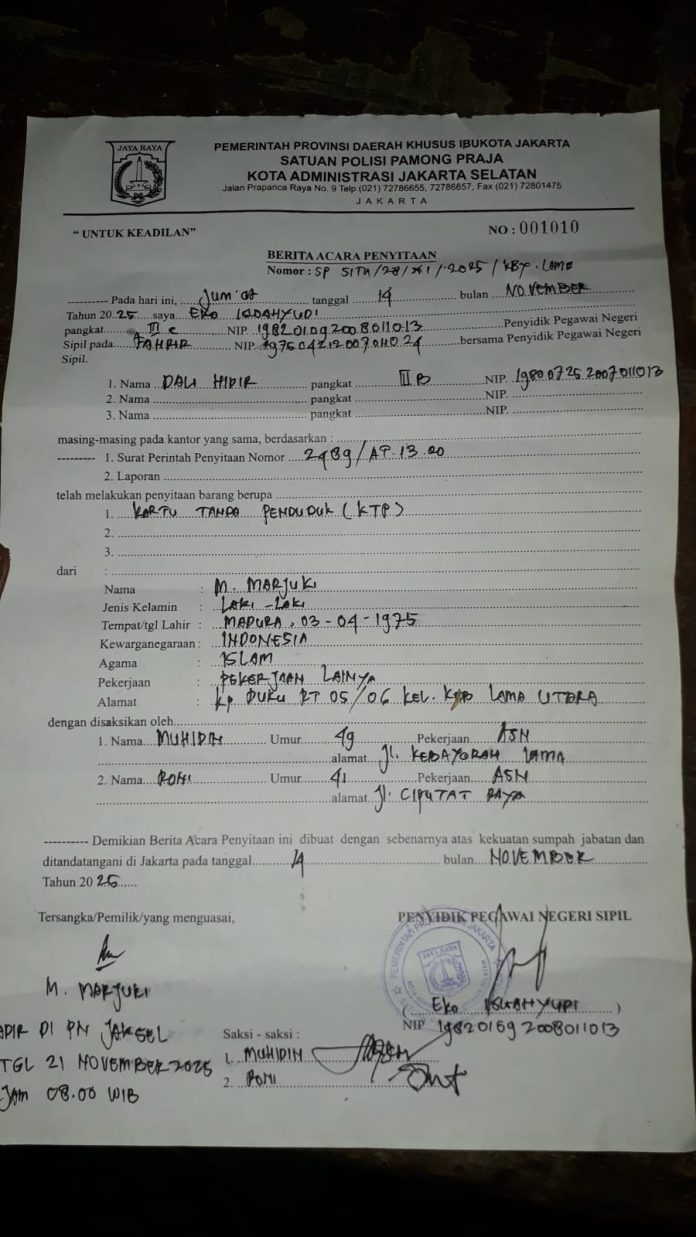 JAYA RAYA
PEMERINTAH PROVINSI DAERAH KHUSUS IBUKOTA JAKARTA
SATUAN POLISI PAMONG PRAJA
KOTA ADMINISTRASI JAKARTA SELATAN
Jalan Prapanca Raya No. 9 Telp (021) 72786655, 72786657, Fax (021) 72801475
JAKARTA
“ UNTUK KEADILAN”
NO : 001010
BERITA ACARA PENYITAAN
Nomor : SP SITA/28/XI/2025/KBY.LAMA
---------- Pada hari ini, Jum'at tanggal 14 bulan NOVEMBER
Tahun 20.25 saya EKO
pangkat III c NIP. Penyidik Pegawai Negeri
Sipil pada FAHRIR NIP. bersama Penyidik Pegawai Negeri
Sipil.
1. Nama DALI HIDIR pangkat III B NIP. 19800725 2007011013
2. Nama pangkat NIP.
3. Nama pangkat NIP.
masing-masing pada kantor yang sama, berdasarkan :
--------- 1. Surat Perintah Penyitaan Nomor 2489/AT.13.00
2. Laporan
telah melakukan penyitaan barang berupa
1. KARTU TANDA PENDUDUK (KTP)
2.
3.
dari :
Nama : M. MARJUKI
Jenis Kelamin : LAKI - LAKI
Tempat/tgl Lahir : MADURA, 03 - 04 - 1975
Kewarganegaraan : INDONESIA
Agama : ISLAM
Pekerjaan : PEKERJAAN LAINYA
Alamat : KP DUKU RT 05/06 KEL. KBY LAMA UTARA
dengan disaksikan oleh
1. Nama MUHIDIN Umur 49 Pekerjaan ASN
alamat Jl. KEBAYORAN LAMA
2. Nama RONI Umur 41 Pekerjaan ASN
alamat Jl. CIPUTAT RAYA
---------- Demikian Berita Acara Penyitaan ini dibuat dengan sebenarnya atas kekuatan sumpah jabatan dan
ditandatangani di Jakarta pada tanggal 14 bulan NOVEMBER
Tahun 20 25
Tersangka/Pemilik/yang menguasai,
PENYIDIK PEGAWAI NEGERI SIPIL
JAYA RAYA
M. MARJUKI
( EKO )
NIP
ADIR DI PN JAKSEL
TGL 21 NOVEMBER 2025
JAM 08.00 WIB
Saksi - saksi :
1. MUHIDIN
2. RONI